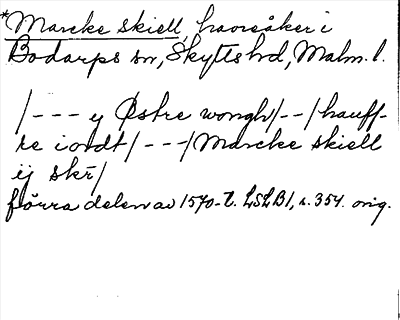 *Marcke skiell, havreåker i
Bodarps sn, Skytts hd, Malm. l.
/--- y Østre wongh/--/hauff-
re iordt/---/Marcke skiell
ij skr̄/
förra delen av 1570-t. LSLB1, s. 354. orig.